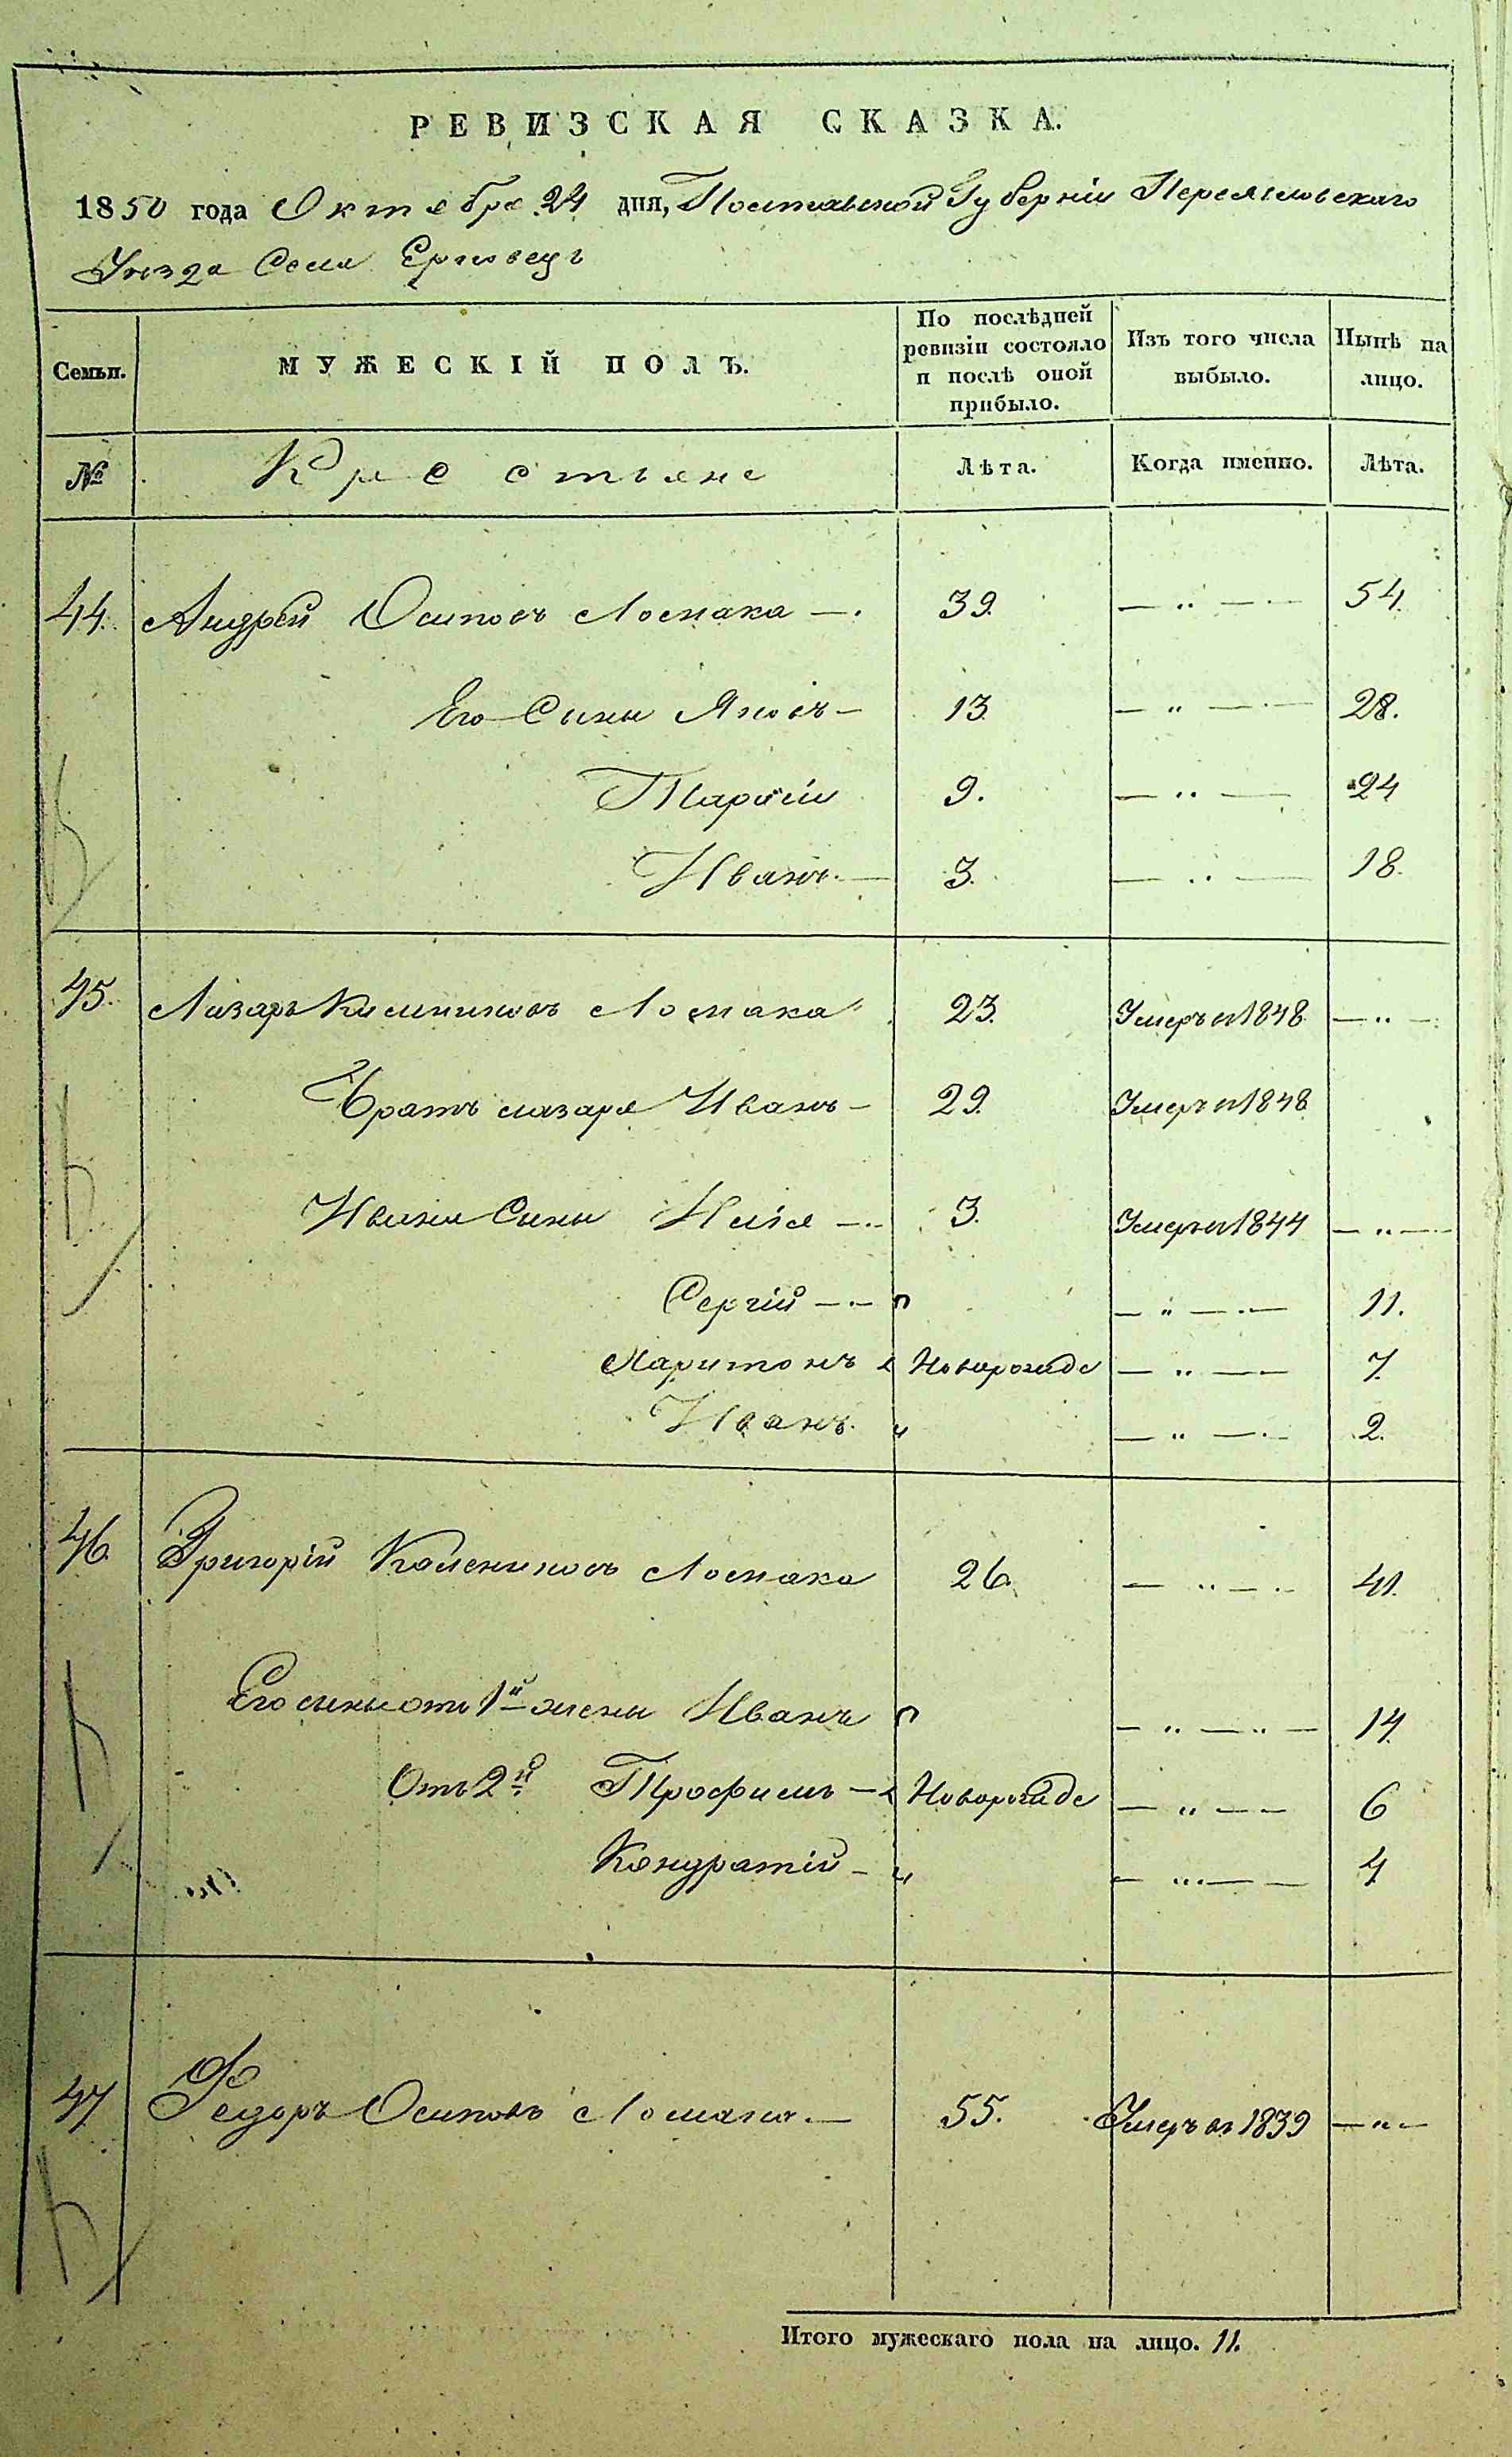 РЕВИЗСКАЯ СКАЗКА.
1850 года Октября 24 дня, Полтавской Губерніи Переяславскаго
Уезда Села Ерковецъ
Семьи. МУЖЕСКІЙ ПОЛЪ. По послѣдней ревизіи состояло и послѣ оной прибыло. Изъ того числа выбыло. Нынѣ на лицо.
№ Крестьяне Лѣта. Когда именно. Лѣта.
44. Андрей Осиповъ Ломака —. 39. — „ — 54.
Его Сыны Яковъ — 13 — „ — 28.
Тарасій 9. — „ — 24
Иванъ — 3. — „ — 18.
45. Лазарь Калениковъ Ломака 23. Умеръ въ 1848 — „ —
Братъ Лазаря Иванъ — 29. Умеръ въ 1848
Ивана Сыны Илія — 3. Умеръ въ 1844 — „ —
Сергій — — „ — 11.
Харитонъ Новорожде — „ — 7.
Иванъ „ — „ — 2.
46. Григорій Калениковъ Ломака 26. — „ — 41.
Его сыны отъ 1й жены Иванъ — „ — „ — 14.
Отъ 2й Трофимъ — Новорожде — „ — 6
Кондратій — „ — „ — 4
47. Федоръ Осиповъ Ломака — 55. Умеръ въ 1839 — „ —
Итого мужескаго пола на лицо. 11.